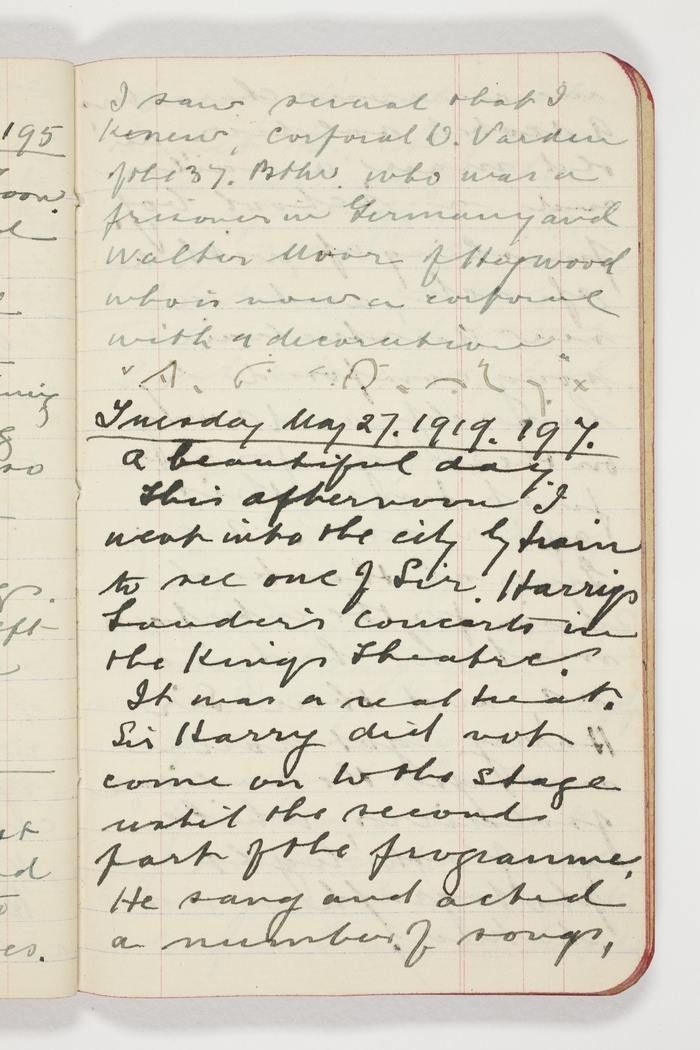 195
I saw several that I
knew, corporal D. Varden
of the 37. Bttn. who was a
prisoner in Germany and
Walter Moor of Heywood
who is now a corporal
with a decoration
Tuesday May 27. 1919. 197.
A beautiful day.
This afternoon I
went into the city by train
to see one of Sir. Harrys
Lauder's concerts in
the Kings Theatre.
It was a real treat.
Sir Harry did not
come on to the stage
until the second
part of the programme.
He sang and acted
a number of songs,